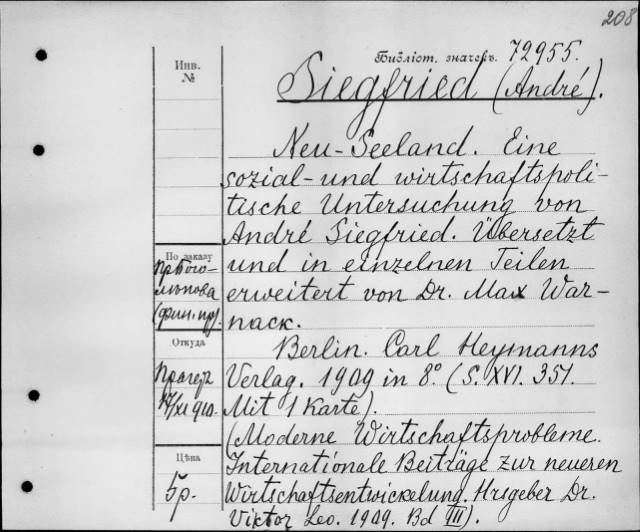 208
Инв.
№
Библіот. значекъ. 72955.
Siegfried (André).
Neu-Seeland. Eine
sozial- und wirtschaftspoli-
tische Untersuchung von
André Siegfried. Übersetzt
und in einzelnen Teilen
erweitert von Dr. Max War-
nack.
Berlin. Carl Heymanns
Verlag. 1909 in 8° (S. XVI. 351.
Mit 1 Karte).
(Moderne Wirtschaftsprobleme.
Internationale Beiträge zur neueren
Wirtschaftsentwickelung. Hrsgeber Dr.
Victor Leo. 1909. Bd III).
По заказу
Пр. Бого-
лѣпова
Откуда
XI 910.
Цѣна
5р.